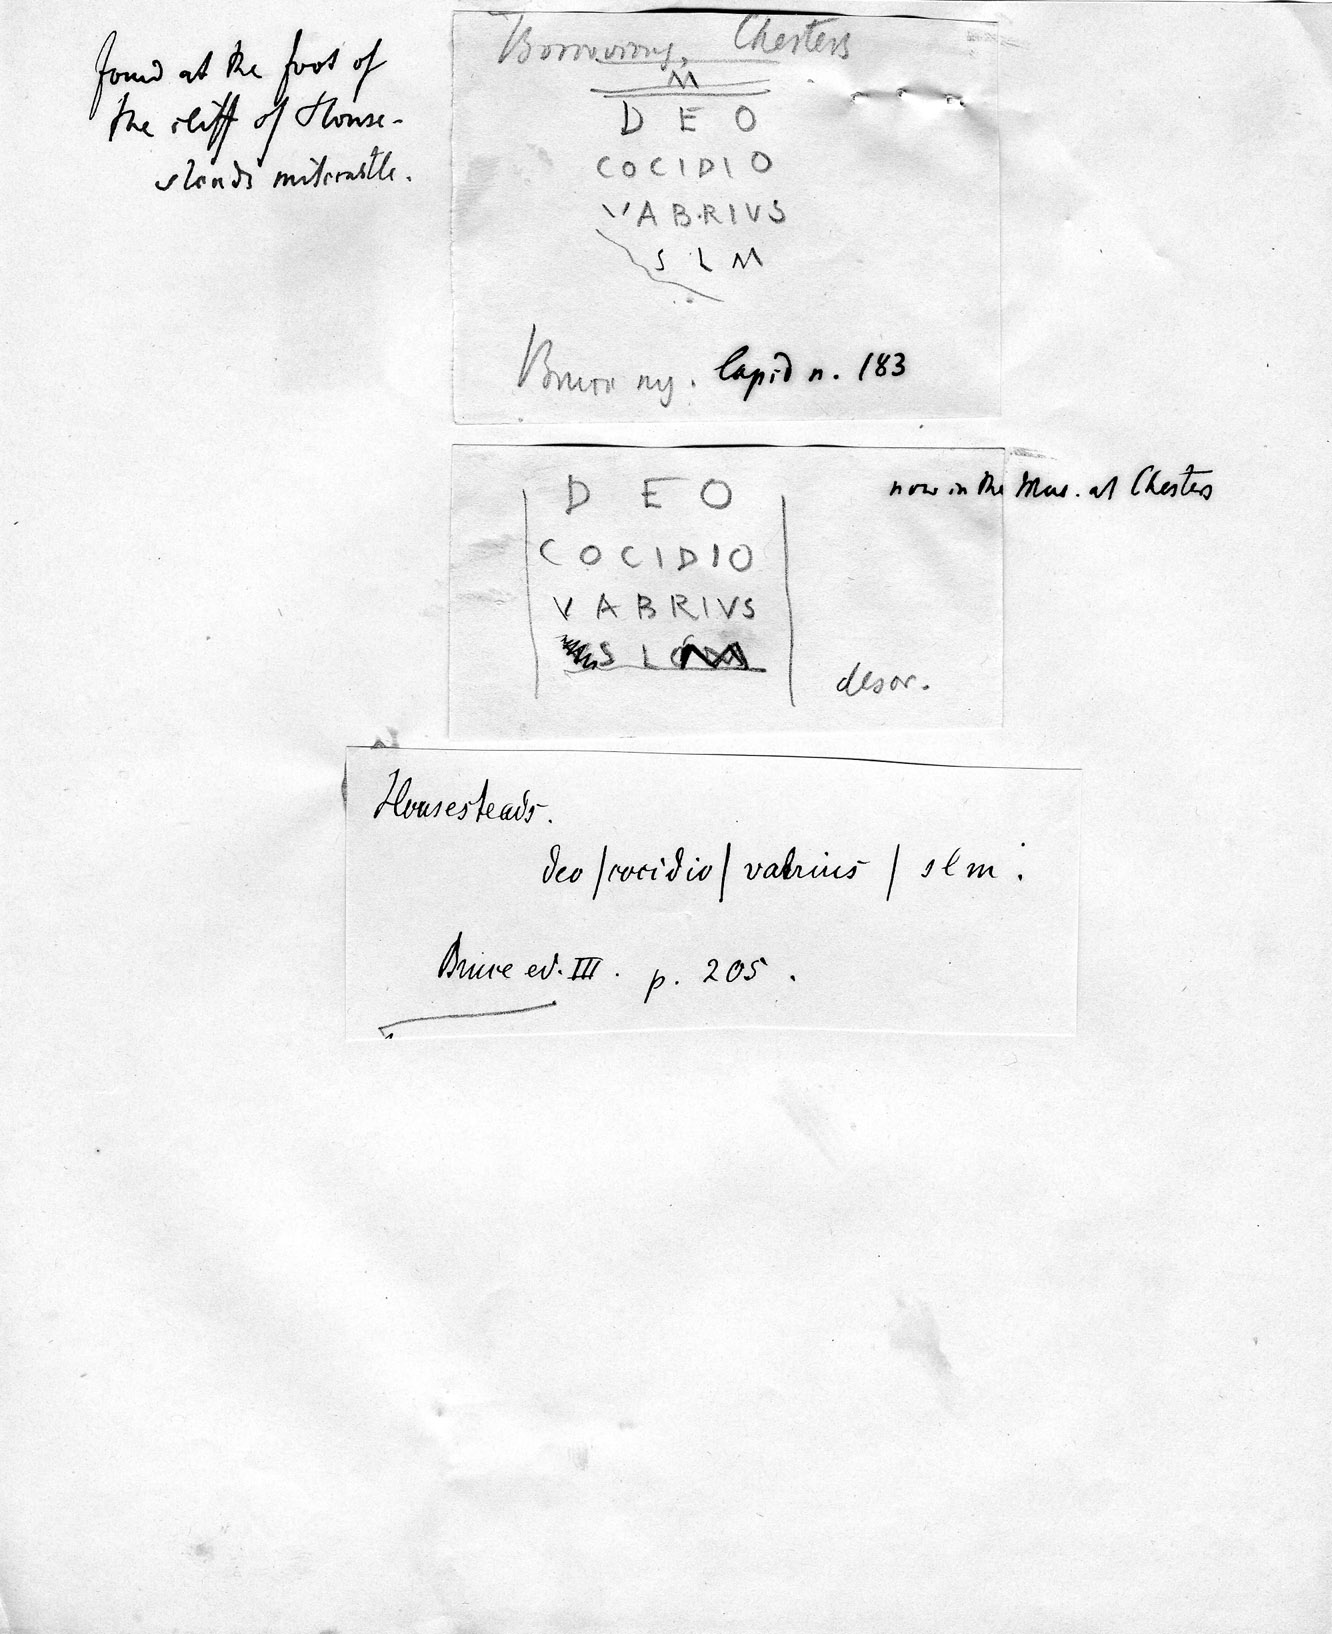 found at the foot of
the cliff of House-
steads milecastle.
Borcovicus, Chesters
M
D E O
COCIDIO
VABRIVS
S L M
Bruce ny. lapid n. 183
D E O
COCIDIO
VABRIVS
S L M
now in the Mus. at Chesters
descr.
Housesteads.
deo/cocidio/vabrius/slm.
Bruce ed. III. p. 205.